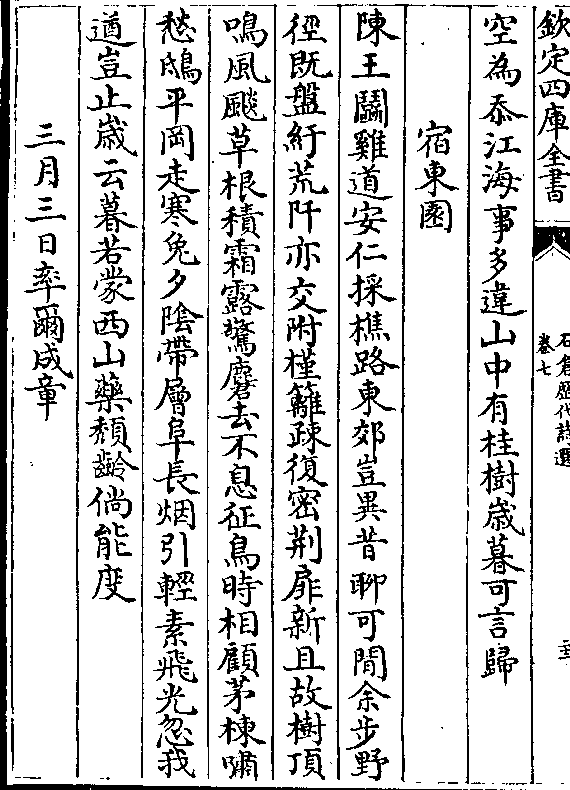 欽定四庫全書
石倉歴代詩選
卷七
空為忝江海事多違山中有桂樹歳暮可言歸
宿東園
陳王鬭雞道安仁採樵路東郊豈異昔聊可閒余步野
徑既盤紆荒阡亦交附槿籬疎復密荆扉新且故樹頂
鳴風飈草根積霜露驚麏去不息征鳥時相顧茅棟嘯
愁鴟平岡走寒兔夕陰帶層阜長烟引輕素飛光忽我
遒豈止歳云暮若蒙西山藥頽齡倘能度
三月三日率爾成章